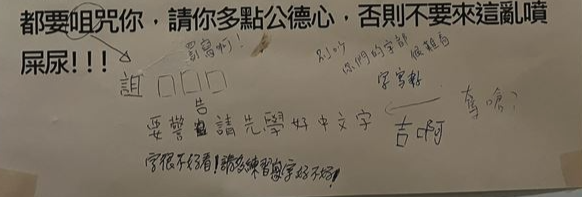 都要咀咒你，請你多點公德心，否則不要來這亂噴
屎尿!!!
罰寫啊!
詛□□□
別吵
你們的字都很難看
字寫好
要警告請先學好中文字
吉啊
奪嗆?
字很不好看!請多練習寫字好不好!